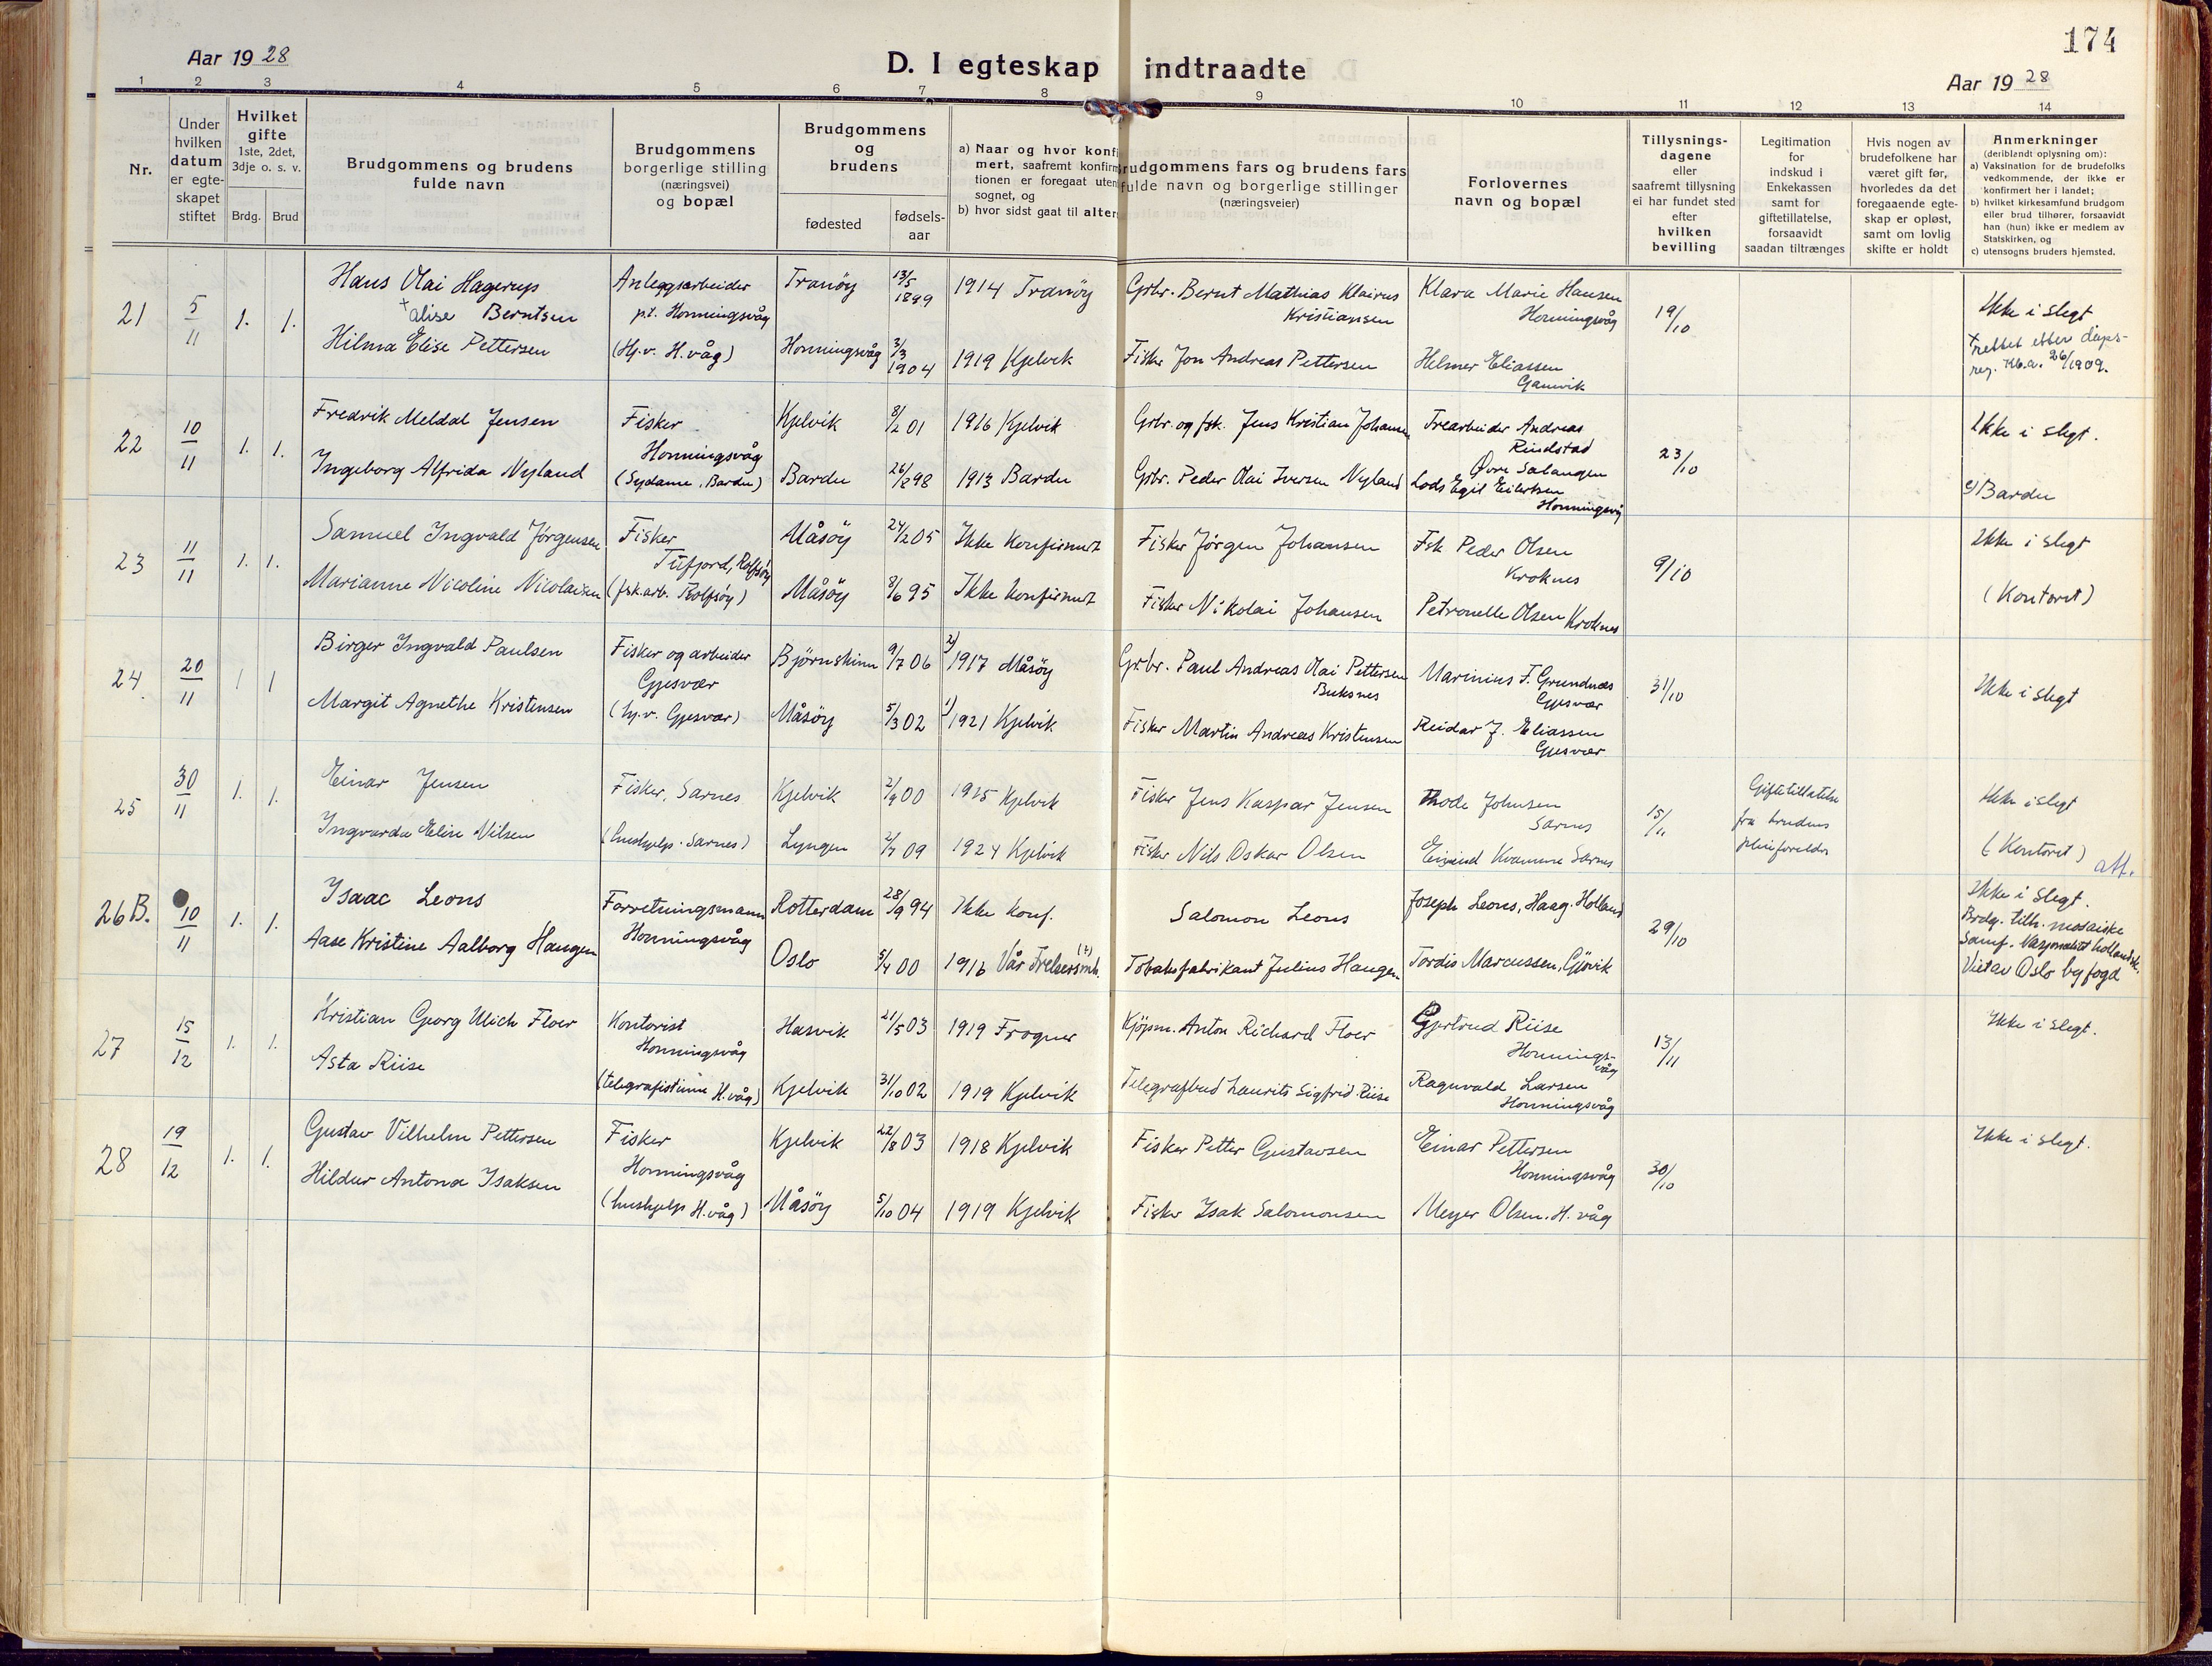 174
Aar 1928
D. I egteskap indtraadte
Aar 1928
1 2 3 4 5 6 7 8 9 10 11 12 13 14
Nr.
Under hvilken datum er egte- skapet stiftet
Hvilket gifte 1ste, 2det, 3dje o. s. v.
Brdg. Brud
Brudgommens og brudens fulde navn
Brudgommens borgerlige stilling (næringsvei) og bopæl
Brudgommens og brudens
fødested
fødsels- aar
a) Naar og hvor konfi
mert, saafremt konfirm
tionen er foregaat uten
sognet, og
b) hvor sidst gaat til alter
rudgommens fars og brudens fars
fulde navn og borgerlige stillinger
(næringsveier)
Forlovernes navn og bopæl
Tillysnings- dagene eller saafremt tillysning ei har fundet sted efter hvilken bevilling
Legitimation for indskud i Enkekassen samt for giftetillatelse, forsaavidt saadan tiltrænges
Hvis nogen av brudefolkene har været gift før, hvorledes da det foregaaende egte- skap er opløst, samt om lovlig skifte er holdt
Anmerkninger
(deriblandt oplysning om):
a) Vaksination for de brudefolks vedkommende, der ikke er konfirmert her i landet;
b) hvilket kirkesamfund brudgom eller brud tilhører, forsaavidt han (hun) ikke er medlem av Statskirken, og
c) utensogns bruders hjemsted.
21 5/11 1. 1.
Hans Olai Hagerup
+alise Berntsen
Hilma Elise Pettersen
Anleggsarbeider
p.t. Honningsvåg
(Hj.v. H.våg)
Tranöy 13/5 1899 1914 Tranöy
Honningsvåg 3/3 1904 1919 Kjelvik
Grbr. Bernt Mathias Klairus
Kristiansen
Fisker Jon Andreas Pettersen
Klara Marie Hansen
Honningsvåg
Helmer Eliassen
Gamvik
19/10
Ikke i slegt
+rettet etter dåps-
reg. Kb.a. 26/1909.
22 10/11 1. 1.
Fredrik Meldal Jensen
Ingeborg Alfrida Nyland
Fisker
Honningsvåg
(Sydame, Bardu)
Kjelvik 8/2 01 1916 Kjelvik
Bardu 26/2 98 1913 Bardu
Grbr. og fsk. Jens Kristian Johansen
Grbr. Peder Olai Iversen Nyland
Trearbeider Andreas
Rindstad
Øvre Salangen
Lods Egil Eilertsen
Honningsvåg
23/10
Ikke i slegt.
c) Bardu
23 11/11 1. 1.
Samuel Ingvald Jörgensen
Marianne Nicoline Nicolaisen
Fisker
Tufjord, Rolfsöy
(fsk.arb. Rolfsöy)
Måsöy 24/2 05 Ikke konfirmert
Måsöy 8/6 95 Ikke konfirmert
Fisker Jörgen Johansen
Fisker Nikolai Johansen
Fsk Peder Olsen
Kroknes
Petronelle Olsen Kroknes
9/10
Ikke i slegt
(Kontoret)
24 20/11 1 1
Birger Ingvald Paulsen
Margit Agnethe Kristensen
Fisker og arbeider
Gjesvær
(hj.v. Gjesvær)
Björnskinn 9/7 06 2) 1917 Måsöy
Måsöy 5/3 02 1) 1921 Kjelvik
Grbr. Paul Andreas Olai Pettersen
Buksnes
Fisker Martin Andreas Kristensen
Marinius F. Grundnæs
Gjesvær
Reidar J. Eliassen
Gjesvær
31/10
Ikke i slegt
25 30/11 1. 1.
Einar Jensen
Ingvarda Elise Nilsen
Fisker, Sarnes
(hushjelp. Sarnes)
Kjelvik 2/9 00 1915 Kjelvik
Lyngen 2/7 09 1924 Kjelvik
Fisker Jens Kaspar Jensen
Fisker Nils Oskar Olsen
Thode Johnsen
Sarnes
Eivind Kvamme Sarnes
15/11
Giftetillatelse
fra brudens
pleieforeldre
Ikke i slegt
(Kontoret)
att.
26B. 10/11 1. 1.
Isaac Leons
Aase Kristine Aalborg Haugen
Forretningsmann
Honningsvåg
Rotterdam 28/9 94 Ikke konf.
Oslo 5/4 00 1916 Vår Frelsersmh. (?)
Salomon Leons
Tobaksfabrikant Julius Haugen
Joseph Leons, Haag. Holland
Tordis Marcussen, Gjövik
29/10
Ikke i slegt.
Brdg. tilh. mosaiske
samf. Nasjonalitet hollandsk.
Viet av Oslo byfogd
27 15/12 1. 1.
Kristian Georg Ulich Floer
Asta Riise
Kontorist
Honningsvåg
(telegrafistinne H.våg)
Hasvik 21/5 03 1919 Frogner
Kjelvik 31/10 02 1919 Kjelvik
Kjöpm. Anton Richard Floer
Telegrafbud Laurits Sigfrid Riise
Gjertrud Riise
Honnings-
våg
Ragnvald Larsen
Honningsvåg
13/11
Ikke i slegt.
28 19/12 1. 1.
Gustav Vilhelm Pettersen
Hildur Antona Isaksen
Fisker
Honningsvåg
(hushjelp H.våg)
Kjelvik 22/8 03 1918 Kjelvik
Måsöy 5/10 04 1919 Kjelvik
Fisker Petter Gustavsen
Fisker Isak Salomonsen
Einar Pettersen
Honningsvåg
Meyer Olsen. H. våg
30/10
Ikke i slegt.